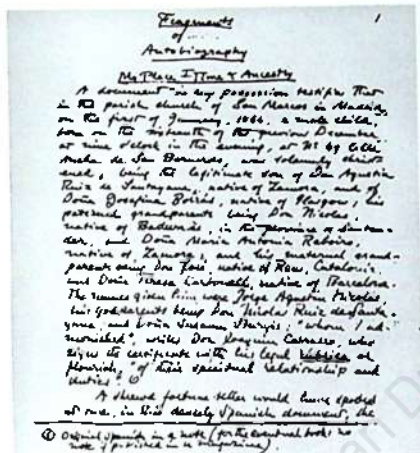 Fragments 1
of
Autobiography
My Place, Time & Ancestry
A document in my possession testifies that
in the parish church of San Marcos in Madrid,
on the first of January, 1864, a male child,
born on the sixteenth of the previous December,
at nine o'clock in the evening, at No 69 Calle
Ancha de San Bernardo, was solemnly christ-
ened; being the legitimate son of Don Agustín
Ruiz de Santayana, native of Zamora, and of
Doña Josefina Borrás, native of Glasgow; his
paternal grandparents being Don Nicolás,
native of Badumès, in the province of Santan-
der, and Doña María Antonia Reboiro,
native of Zamora; and his maternal grand-
parents being Don José, native of Reus, Catalonia,
and Doña Teresa Carbonell, native of Barcelona.
The names given him were Jorge Agustín Nicolás,
his godparents being Don Nicolás Ruiz de Santa-
yana, and Doña Susana Sturgis; "whom I ad-
monished", writes Don Joaquín Carrasco, who
signs the certificate with his legal rúbrica or
flourish, "of their spiritual relationship and
duties".
A shrewd fortune-teller would have spotted
at once, in this densely Spanish document, the
Original Spanish in a note (for the eventual book: no
note if published in a magazine).